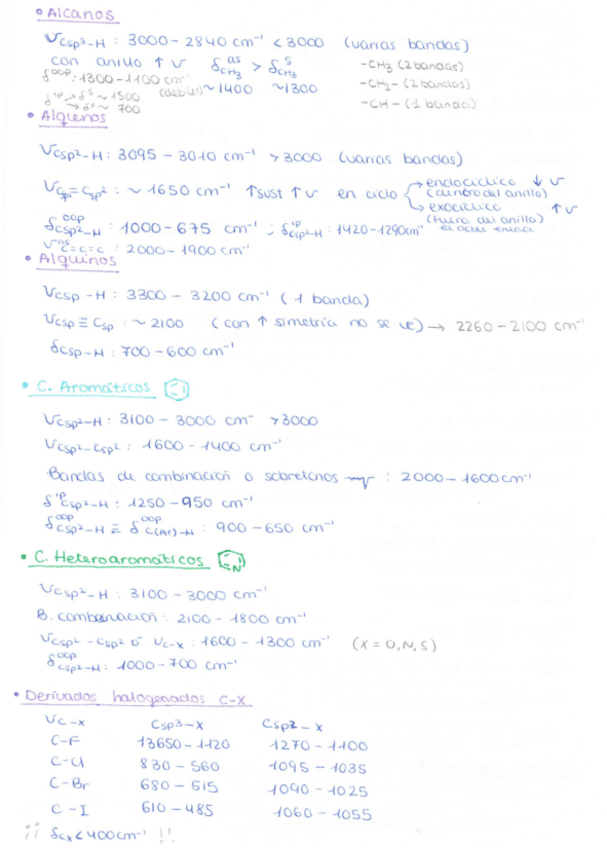 • Alcanos
νCsp³-H : 3000-2840 cm⁻¹ <3000 (varias bandas)
con anillo ↑ν δᵃˢCH₃ > δˢCH₃ -CH₃ (2 bandas)
δᵒᵒᵖ: 1300-1100 cm⁻¹ (débil) ~1400 ~1300 -CH₂- (2 bandas)
δⁱᵖ → δˢ ~ 1500 -CH- (1 banda)
→ δᵃ ~ 700
• Alquenos
νCsp²-H : 3095-3010 cm⁻¹ >3000 (varias bandas)
νCsp²=Csp² : ~1650 cm⁻¹ ↑sust ↑ν en ciclo → endocíclico ↓ν
(dentro del anillo)
→ exocíclico ↑ν
(fuera del anillo)
δᵒᵒᵖCsp²-H : 1000-675 cm⁻¹ ; δⁱᵖCsp²-H : 1420-1290cm⁻¹ el doble enlace
νᵃˢC=C=C : 2000-1900 cm⁻¹
• Alquinos
νCsp-H : 3300-3200 cm⁻¹ (1 banda)
νCsp≡Csp : ~2100 (con ↑ simetría no se ve) → 2260-2100 cm⁻¹
δCsp-H : 700-600 cm⁻¹
• C. Aromáticos
νCsp²-H : 3100-3000 cm⁻ >3000
νCsp²-Csp² : 1600-1400 cm⁻¹
Bandas de combinación o sobretonos : 2000-1600cm⁻¹
δⁱᵖCsp²-H : 1250-950 cm⁻¹
δᵒᵒᵖCsp²-H ≡ δᵒᵒᵖC(Ar)-H : 900-650 cm⁻¹
• C. Heteroaromáticos N
νCsp²-H : 3100-3000 cm⁻¹
B. combinación : 2100-1800 cm⁻¹
νCsp²-Csp² ó νC-X : 1600-1300 cm⁻¹ (X = O, N, S)
δᵒᵒᵖCsp²-H : 1000-700 cm⁻¹
• Derivados halogenados C-X
νC-X Csp³-X Csp²-X
C-F 13650-1120 1270-1100
C-Cl 830-560 1095-1035
C-Br 680-515 1090-1025
C-I 610-485 1060-1055
¡¡ δCX < 400cm⁻¹ !!